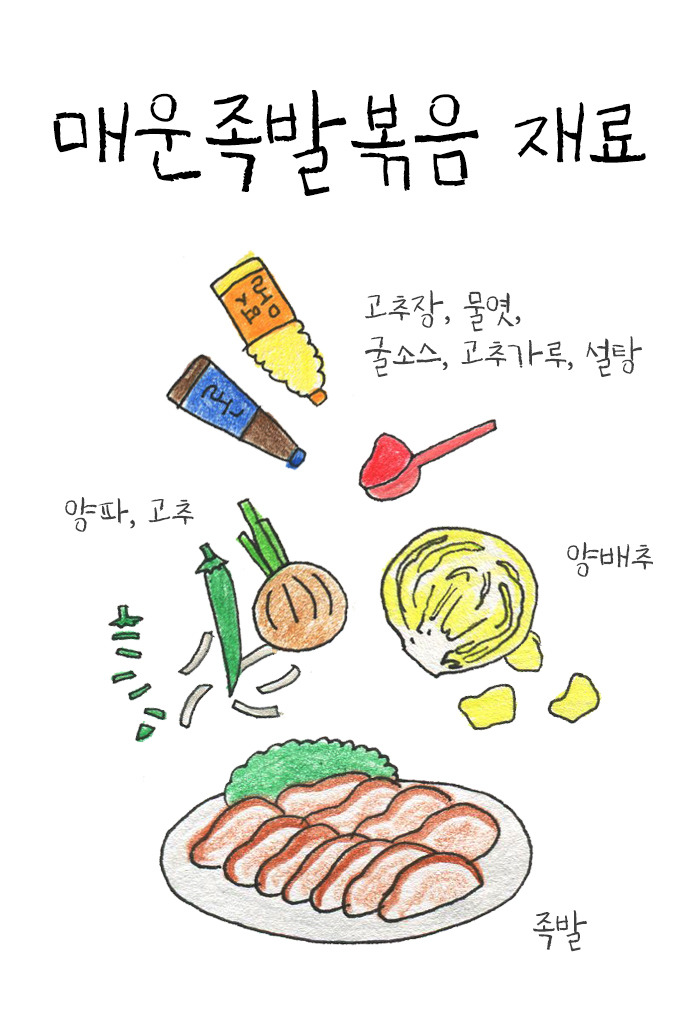 매운족발볶음 재료
물엿
고추장, 물엿,
굴소스, 고추가루, 설탕
굴
양파, 고추
양배추
족발